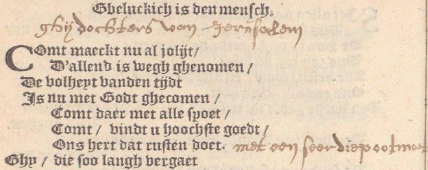 Gheluckich is den mensch.
ghij dochters van Jerusalem
Comt maeckt nu al jolijt/
D'allend is wegh ghenomen/
De volheyt vanden tijdt
Is nu met Godt ghecomen/
Comt daer met alle spoet/
Comt/ vindt u hoochste goedt/
Ons hert dat rusten doet. met een seer diepootmoet
Ghy/ die soo langh vergaet